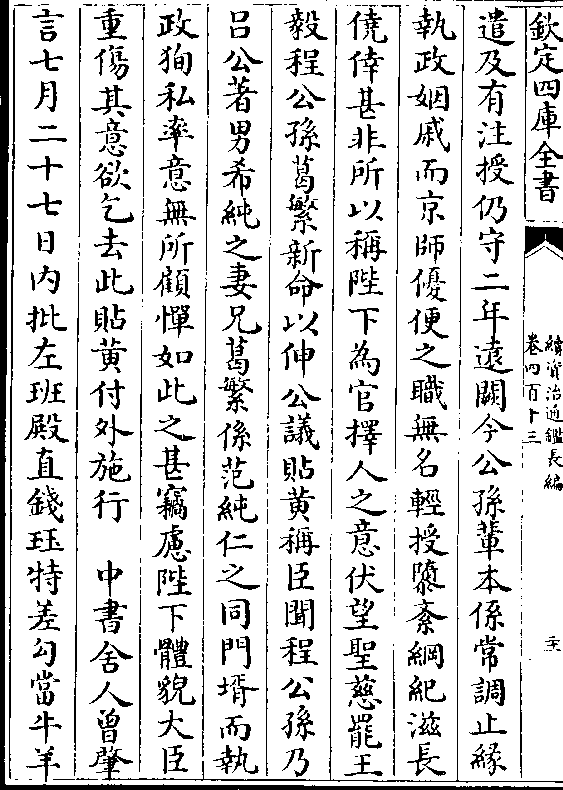 欽定四庫全書
續資治通鑑長編
卷四百十三
二十
遣及有注授仍守二年遠闕今公孫輩本係常調止緣
執政姻戚而京師優便之職無名輕授隳紊綱紀滋長
僥倖甚非所以稱陛下為官擇人之意伏望聖慈罷王
毅程公孫葛繁新命以伸公議貼黄稱臣聞程公孫乃
吕公著男希純之妻兄葛繁係范純仁之同門壻而執
政狥私率意無所顧憚如此之甚竊慮陛下體貌大臣
重傷其意欲乞去此貼黄付外施行　中書舍人曾肇
言七月二十七日内批左班殿直錢珏特差勾當牛羊